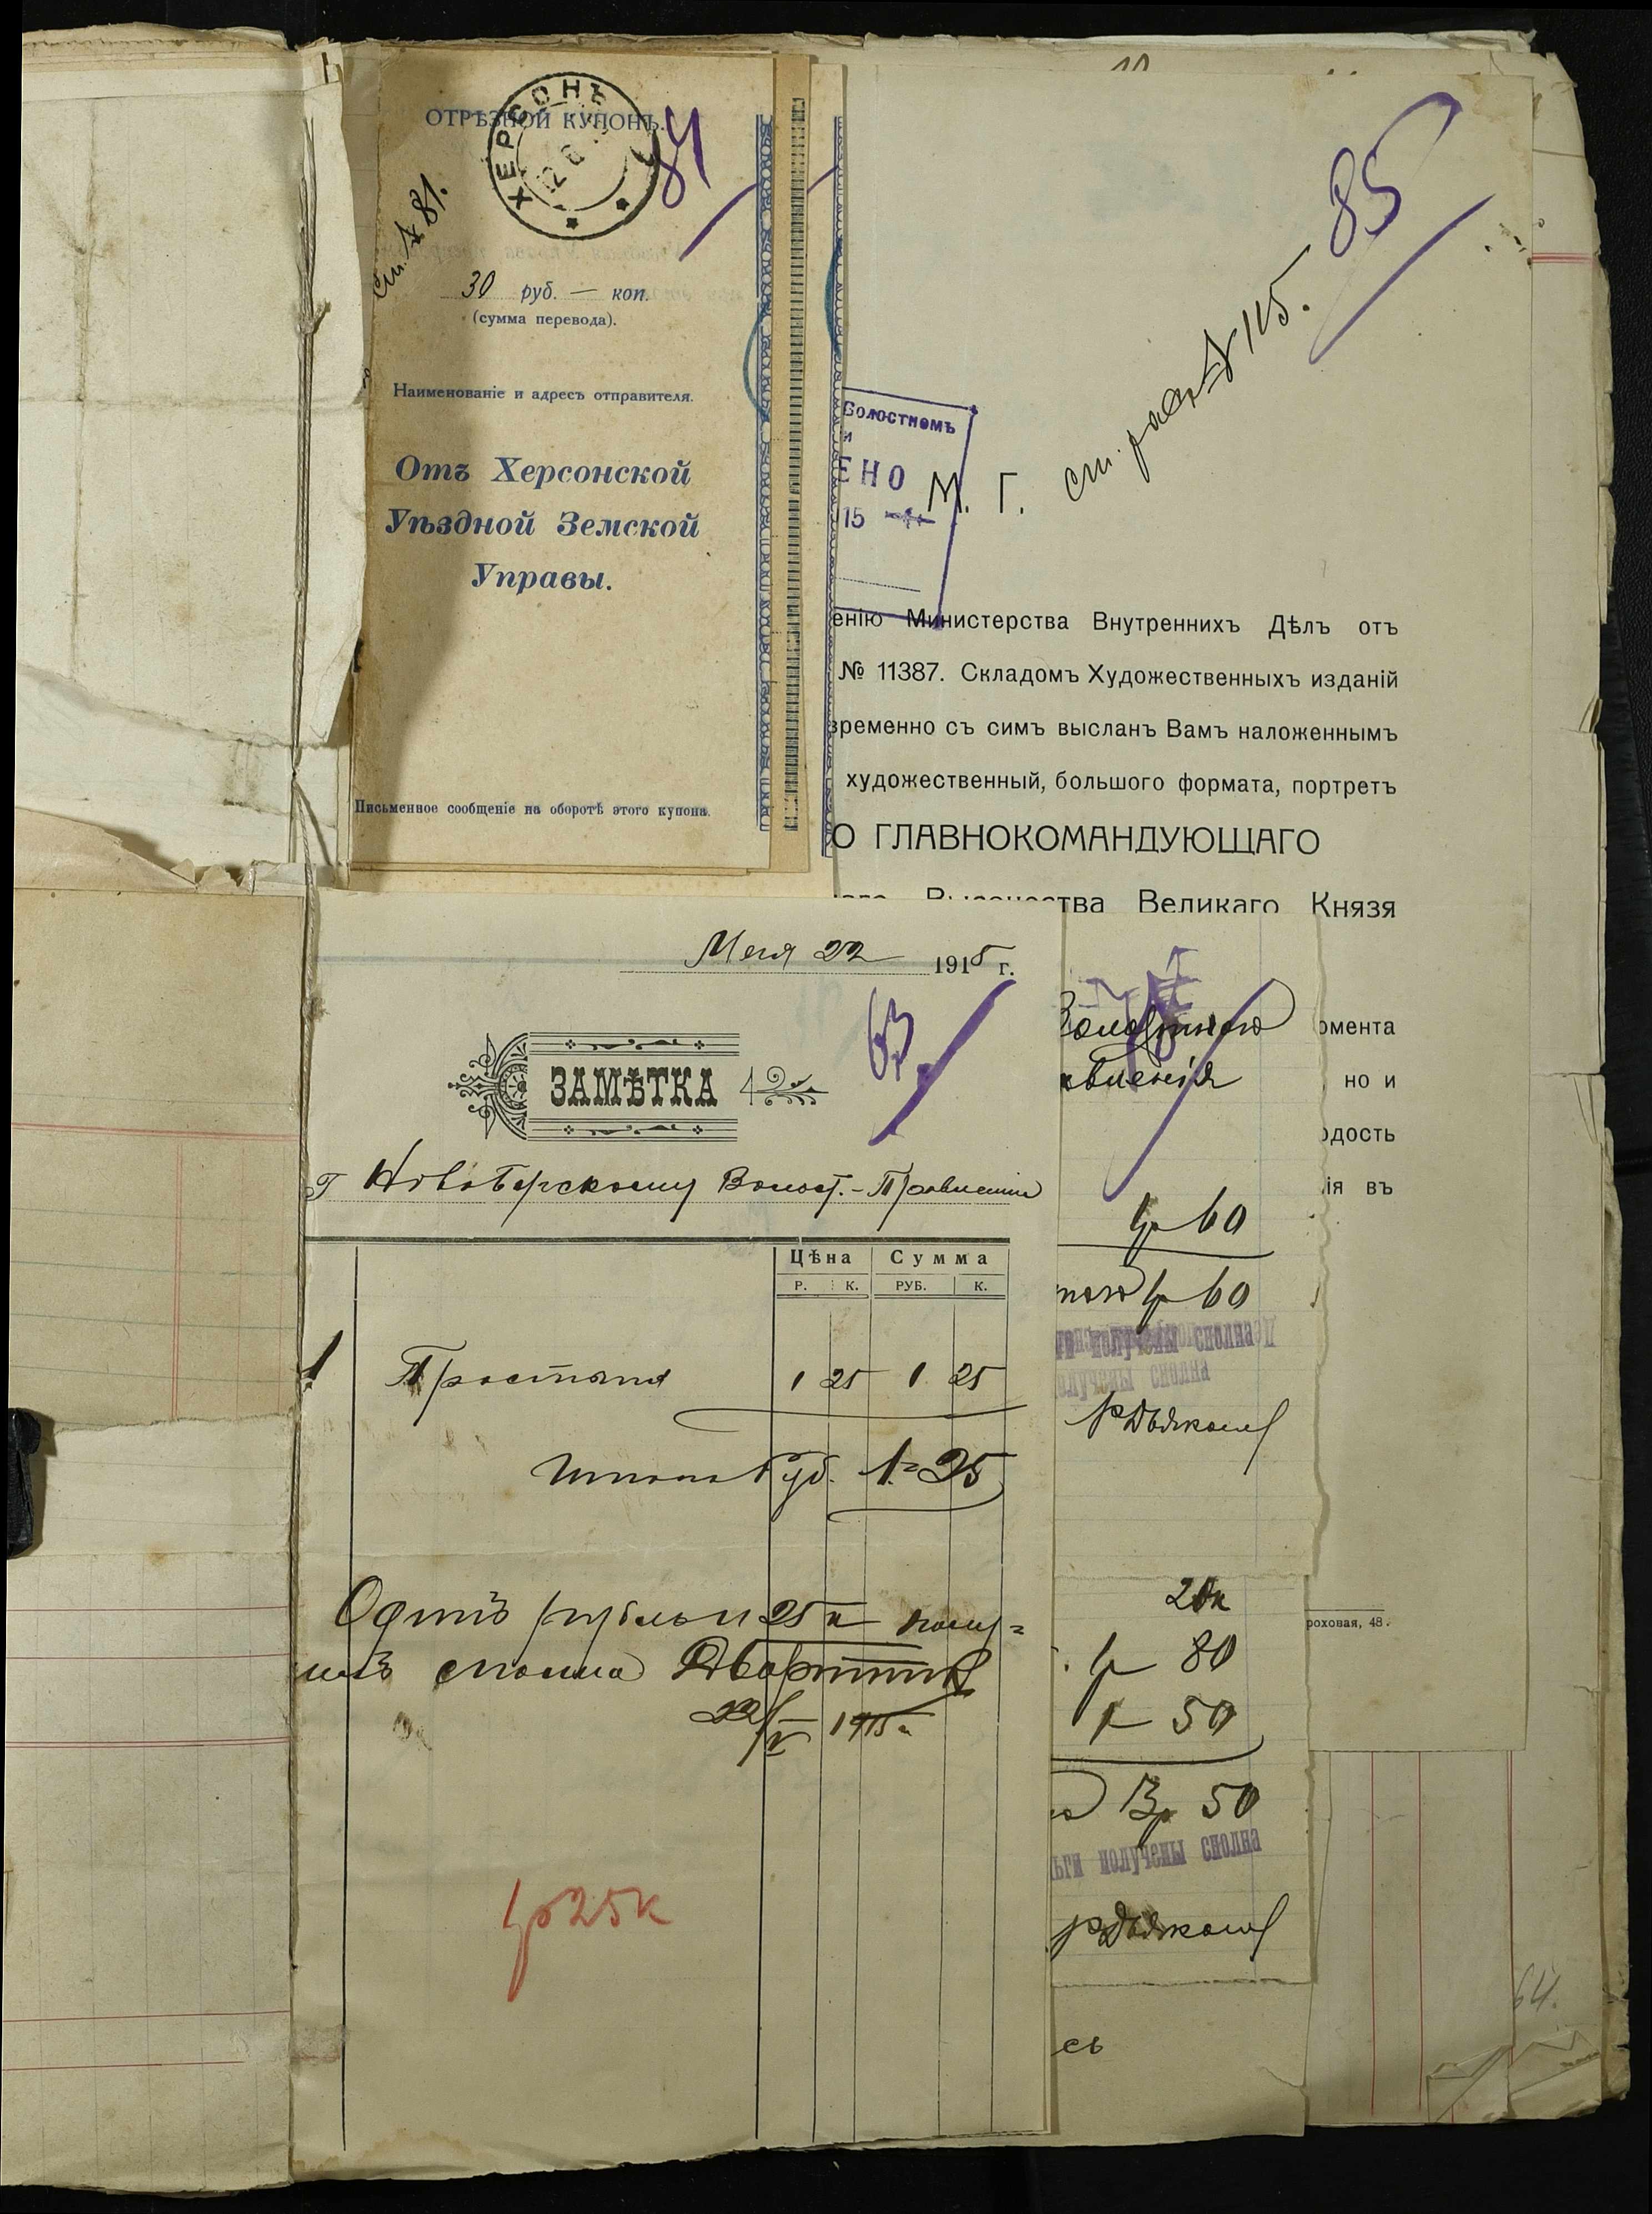 ОТРѢЗНОЙ КУПОНЪ.
ХЕРСОНЪ
12 6
84
ст. № 81.
30 руб. — коп.
(сумма перевода).
Наименованіе и адресъ отправителя.
Отъ Херсонской
Уѣздной Земской
Управы.
Письменное сообщеніе на оборотѣ этого купона.
85
ст. расх. № 115.
Волостномъ
и
ЕНО
15
М. Г.
енію Министерства Внутреннихъ Дѣлъ отъ
№ 11387. Складомъ Художественныхъ изданій
временно съ симъ высланъ Вамъ наложеннымъ
художественный, большого формата, портретъ
О ГЛАВНОКОМАНДУЮЩАГО
Высочества Великаго Князя
омента
но и
одость
ія въ
роховая, 48.
Мая 22 1915 г.
63
ЗАМѢТКА
Г Новобугскому Волост. - Правленію
Цѣна Сумма
Р. К. РУБ. К.
1 Простыня 1 25 1 25
Итого Руб. 1=25
Одинъ рубль и 25 к полу=
чилъ сполна
22/V 1915 г.
1р 25к
Волостного
авленія
1р 60
того 1р 60
ги получены сполна
олучены сполна
20к
1р 80
1 — 50
3р 50
ьги получены сполна
сь
64.